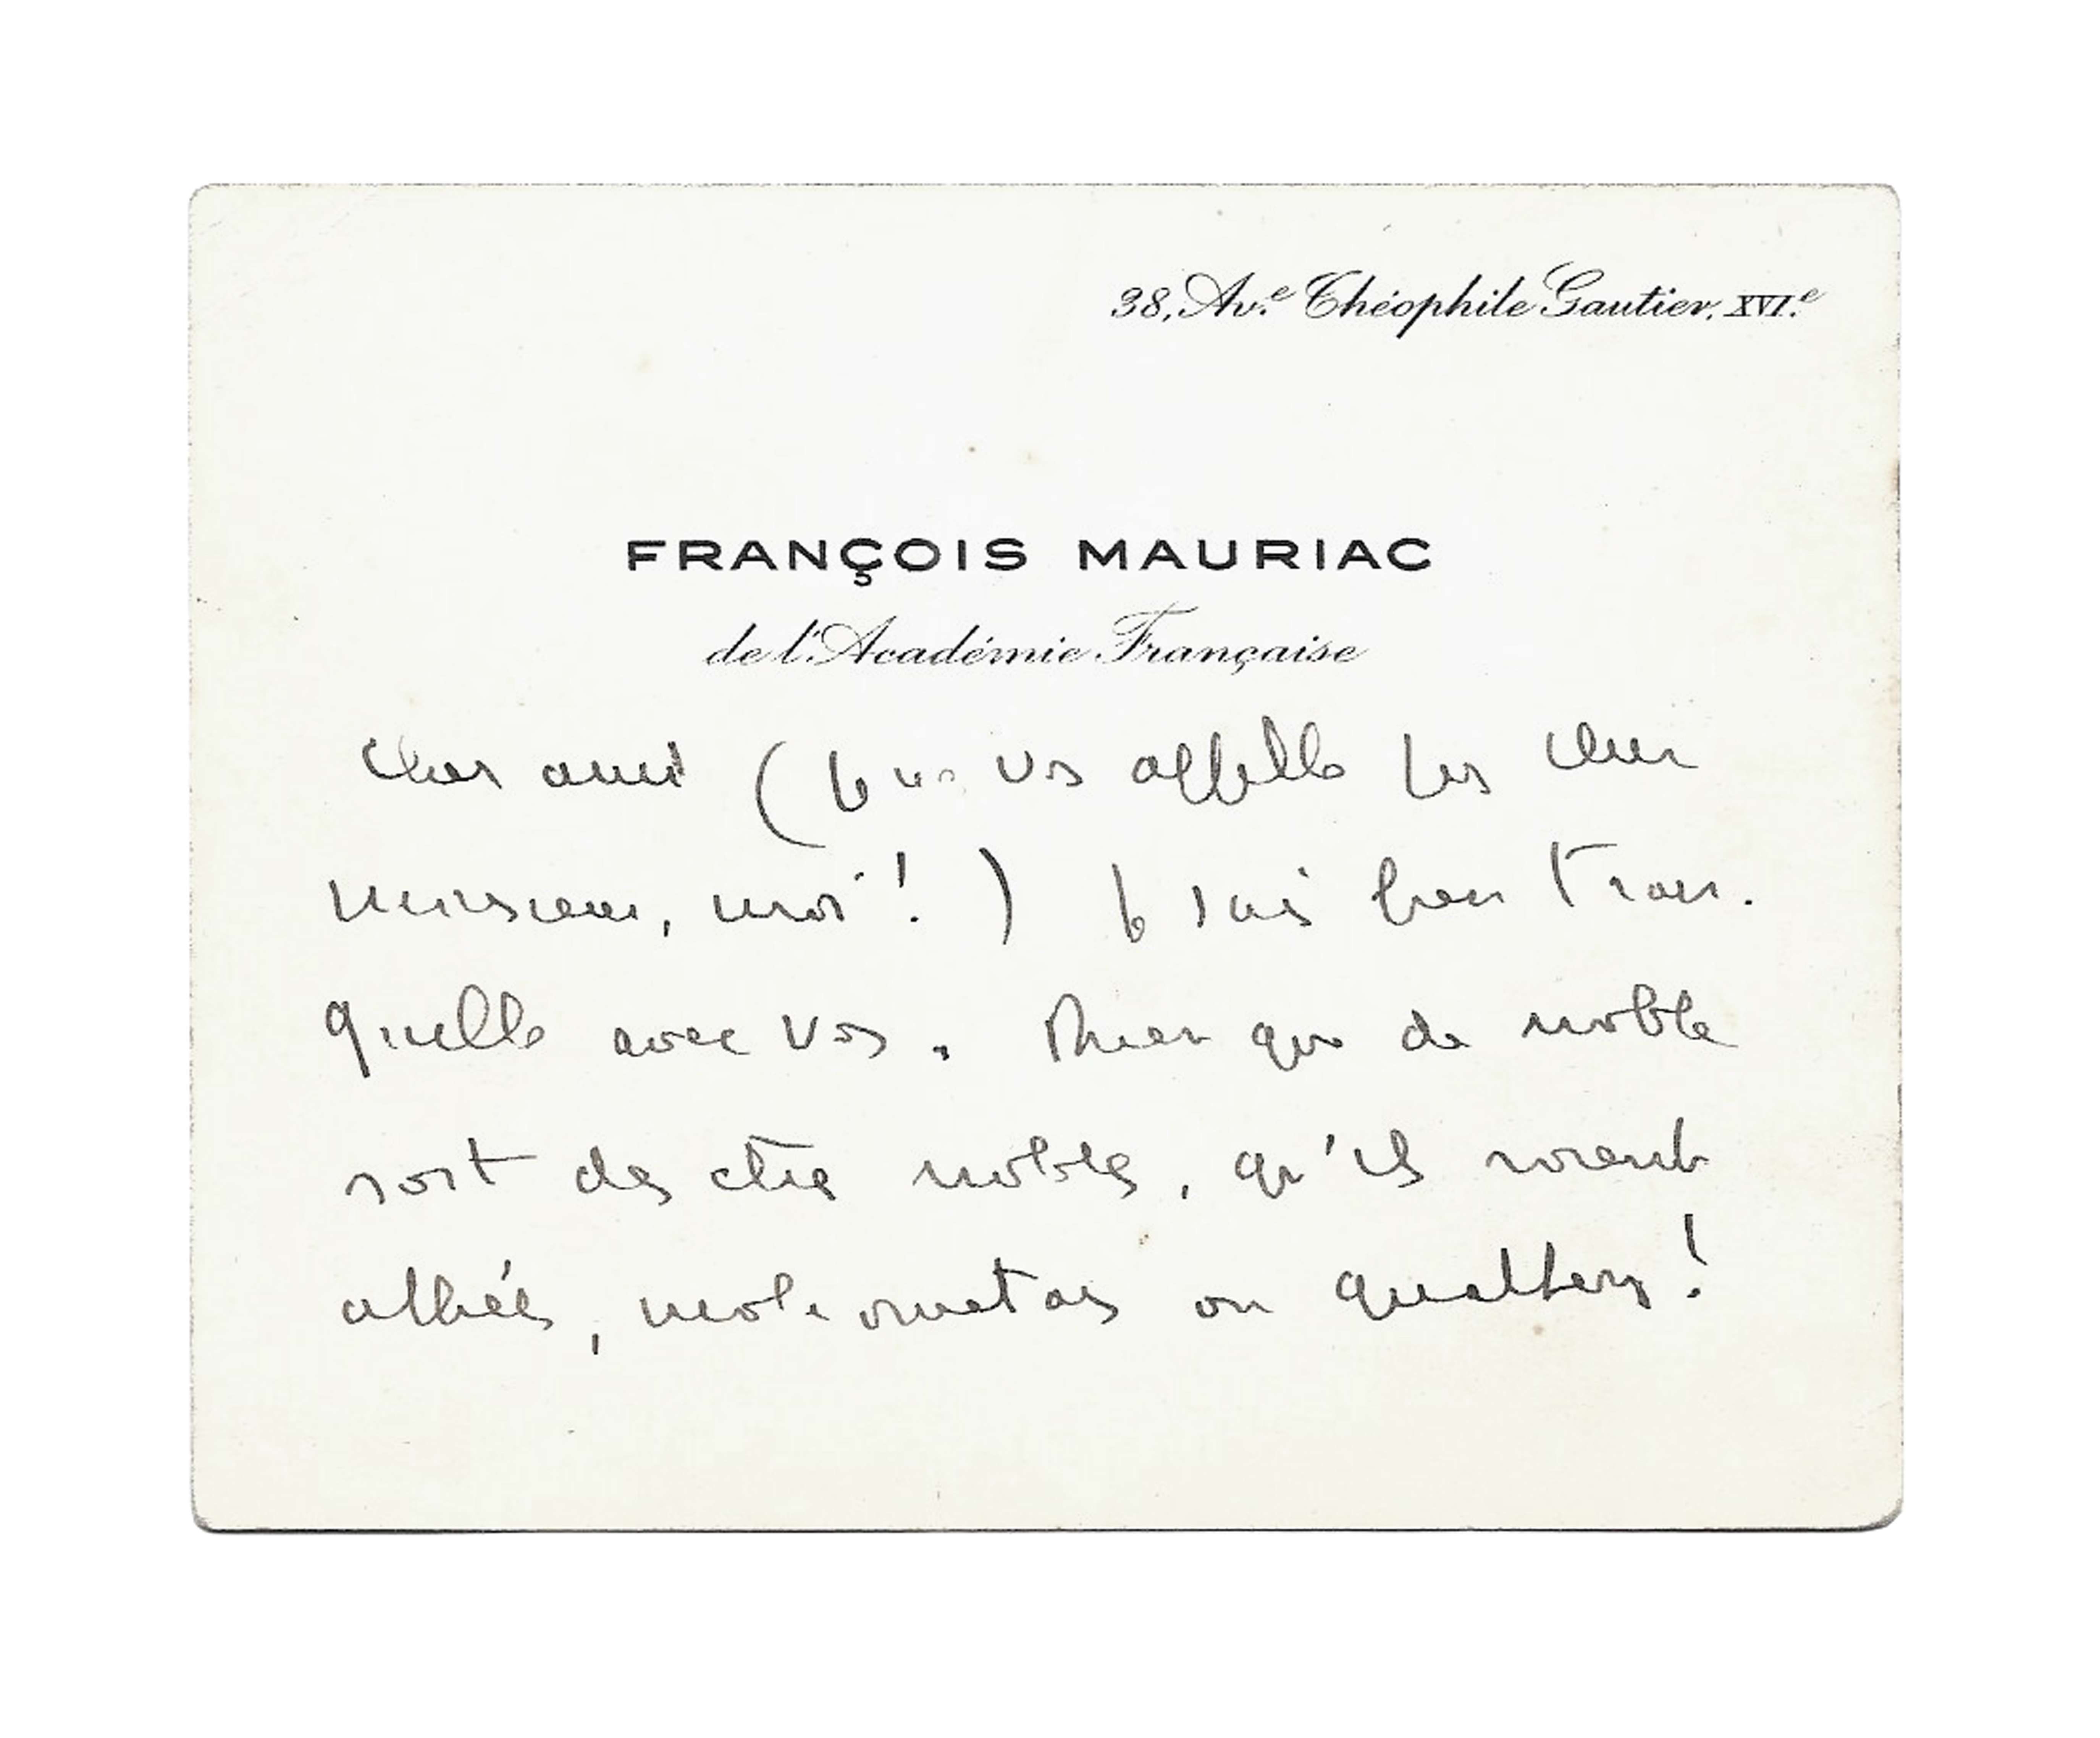 38, Av.e Théophile Gautier, XVI.e
FRANÇOIS MAURIAC
de l'Académie Française
Cher ami (je ne vs appelle pas cher
monsieur, moi ! ) je suis bien tran.
quille avec vos. Rien que de noble
sort des êtres nobles, qu'ils soient
athées, mahométans ou quakers !